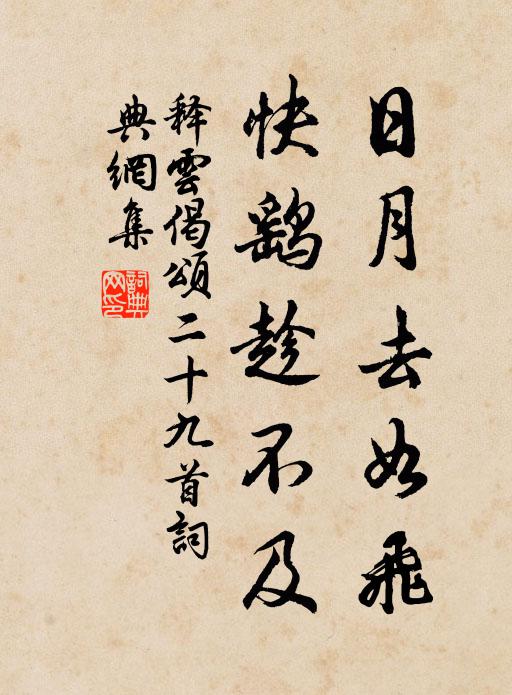 日月去如飛
快鷂趁不及
释雲偈頌二十九首詞
典網集
詞典網印